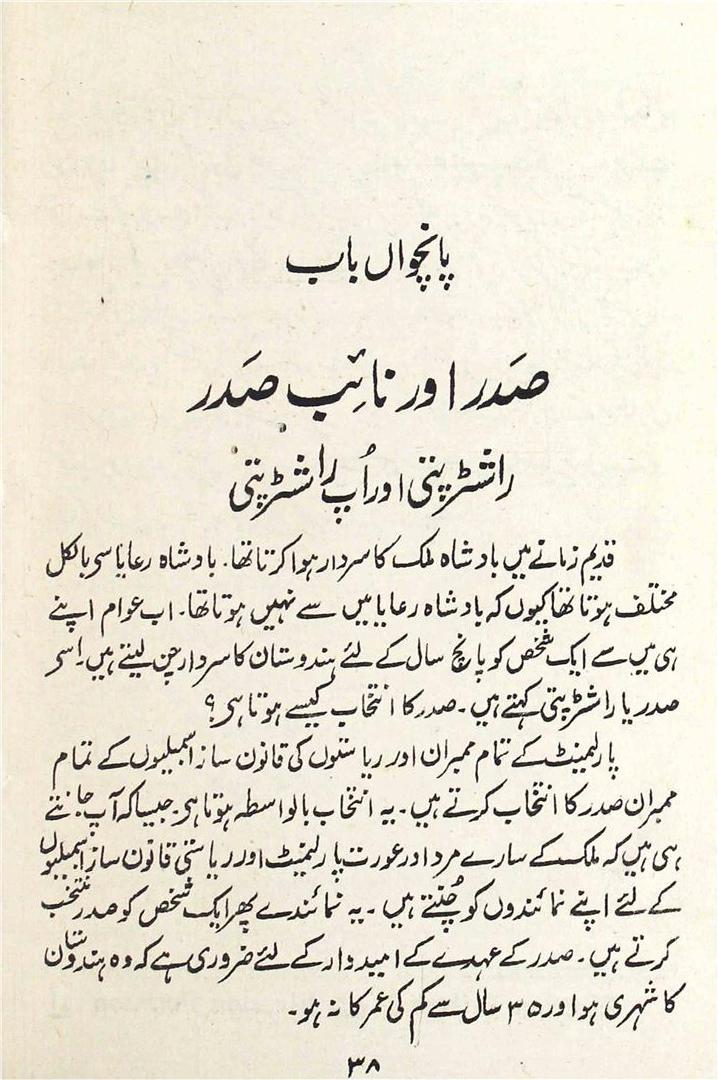 پانچواں باب
صَدر اور نائِب صَدر
راشٹرپتی اور اُپ راشٹرپتی
قدیم زمانے میں بادشاہ ملک کا سردار ہوا کرتا تھا۔ بادشاہ رعایا سے بالکل
مختلف ہوتا تھا کیوں کہ بادشاہ رعایا میں سے نہیں ہوتا تھا۔ اب عوام اپنے
ہی میں سے ایک شخص کو پانچ سال کے لئے ہندوستان کا سردار چن لیتے ہیں۔ اسے
صدر یا راشٹرپتی کہتے ہیں۔ صدر کا انتخاب کیسے ہوتا ہے؟
پارلیمنٹ کے تمام ممبران اور ریاستوں کی قانون ساز اسمبلیوں کے تمام
ممبران صدر کا انتخاب کرتے ہیں۔ یہ انتخاب بالواسطہ ہوتا ہے۔ جیسا کہ آپ جانتے
ہی ہیں کہ ملک کے سارے مرد اور عورت پارلیمنٹ اور ریاستی قانون ساز اسمبلیوں
کے لئے اپنے نمائندوں کو چُنتے ہیں۔ یہ نمائندے پھر ایک شخص کو صدر منتخب
کرتے ہیں۔ صدر کے عہدے کے امیدوار کے لئے ضروری ہے کہ وہ ہندوستان
کا شہری ہو اور ۳۵ سال سے کم کی عمر کا نہ ہو۔
۳۸